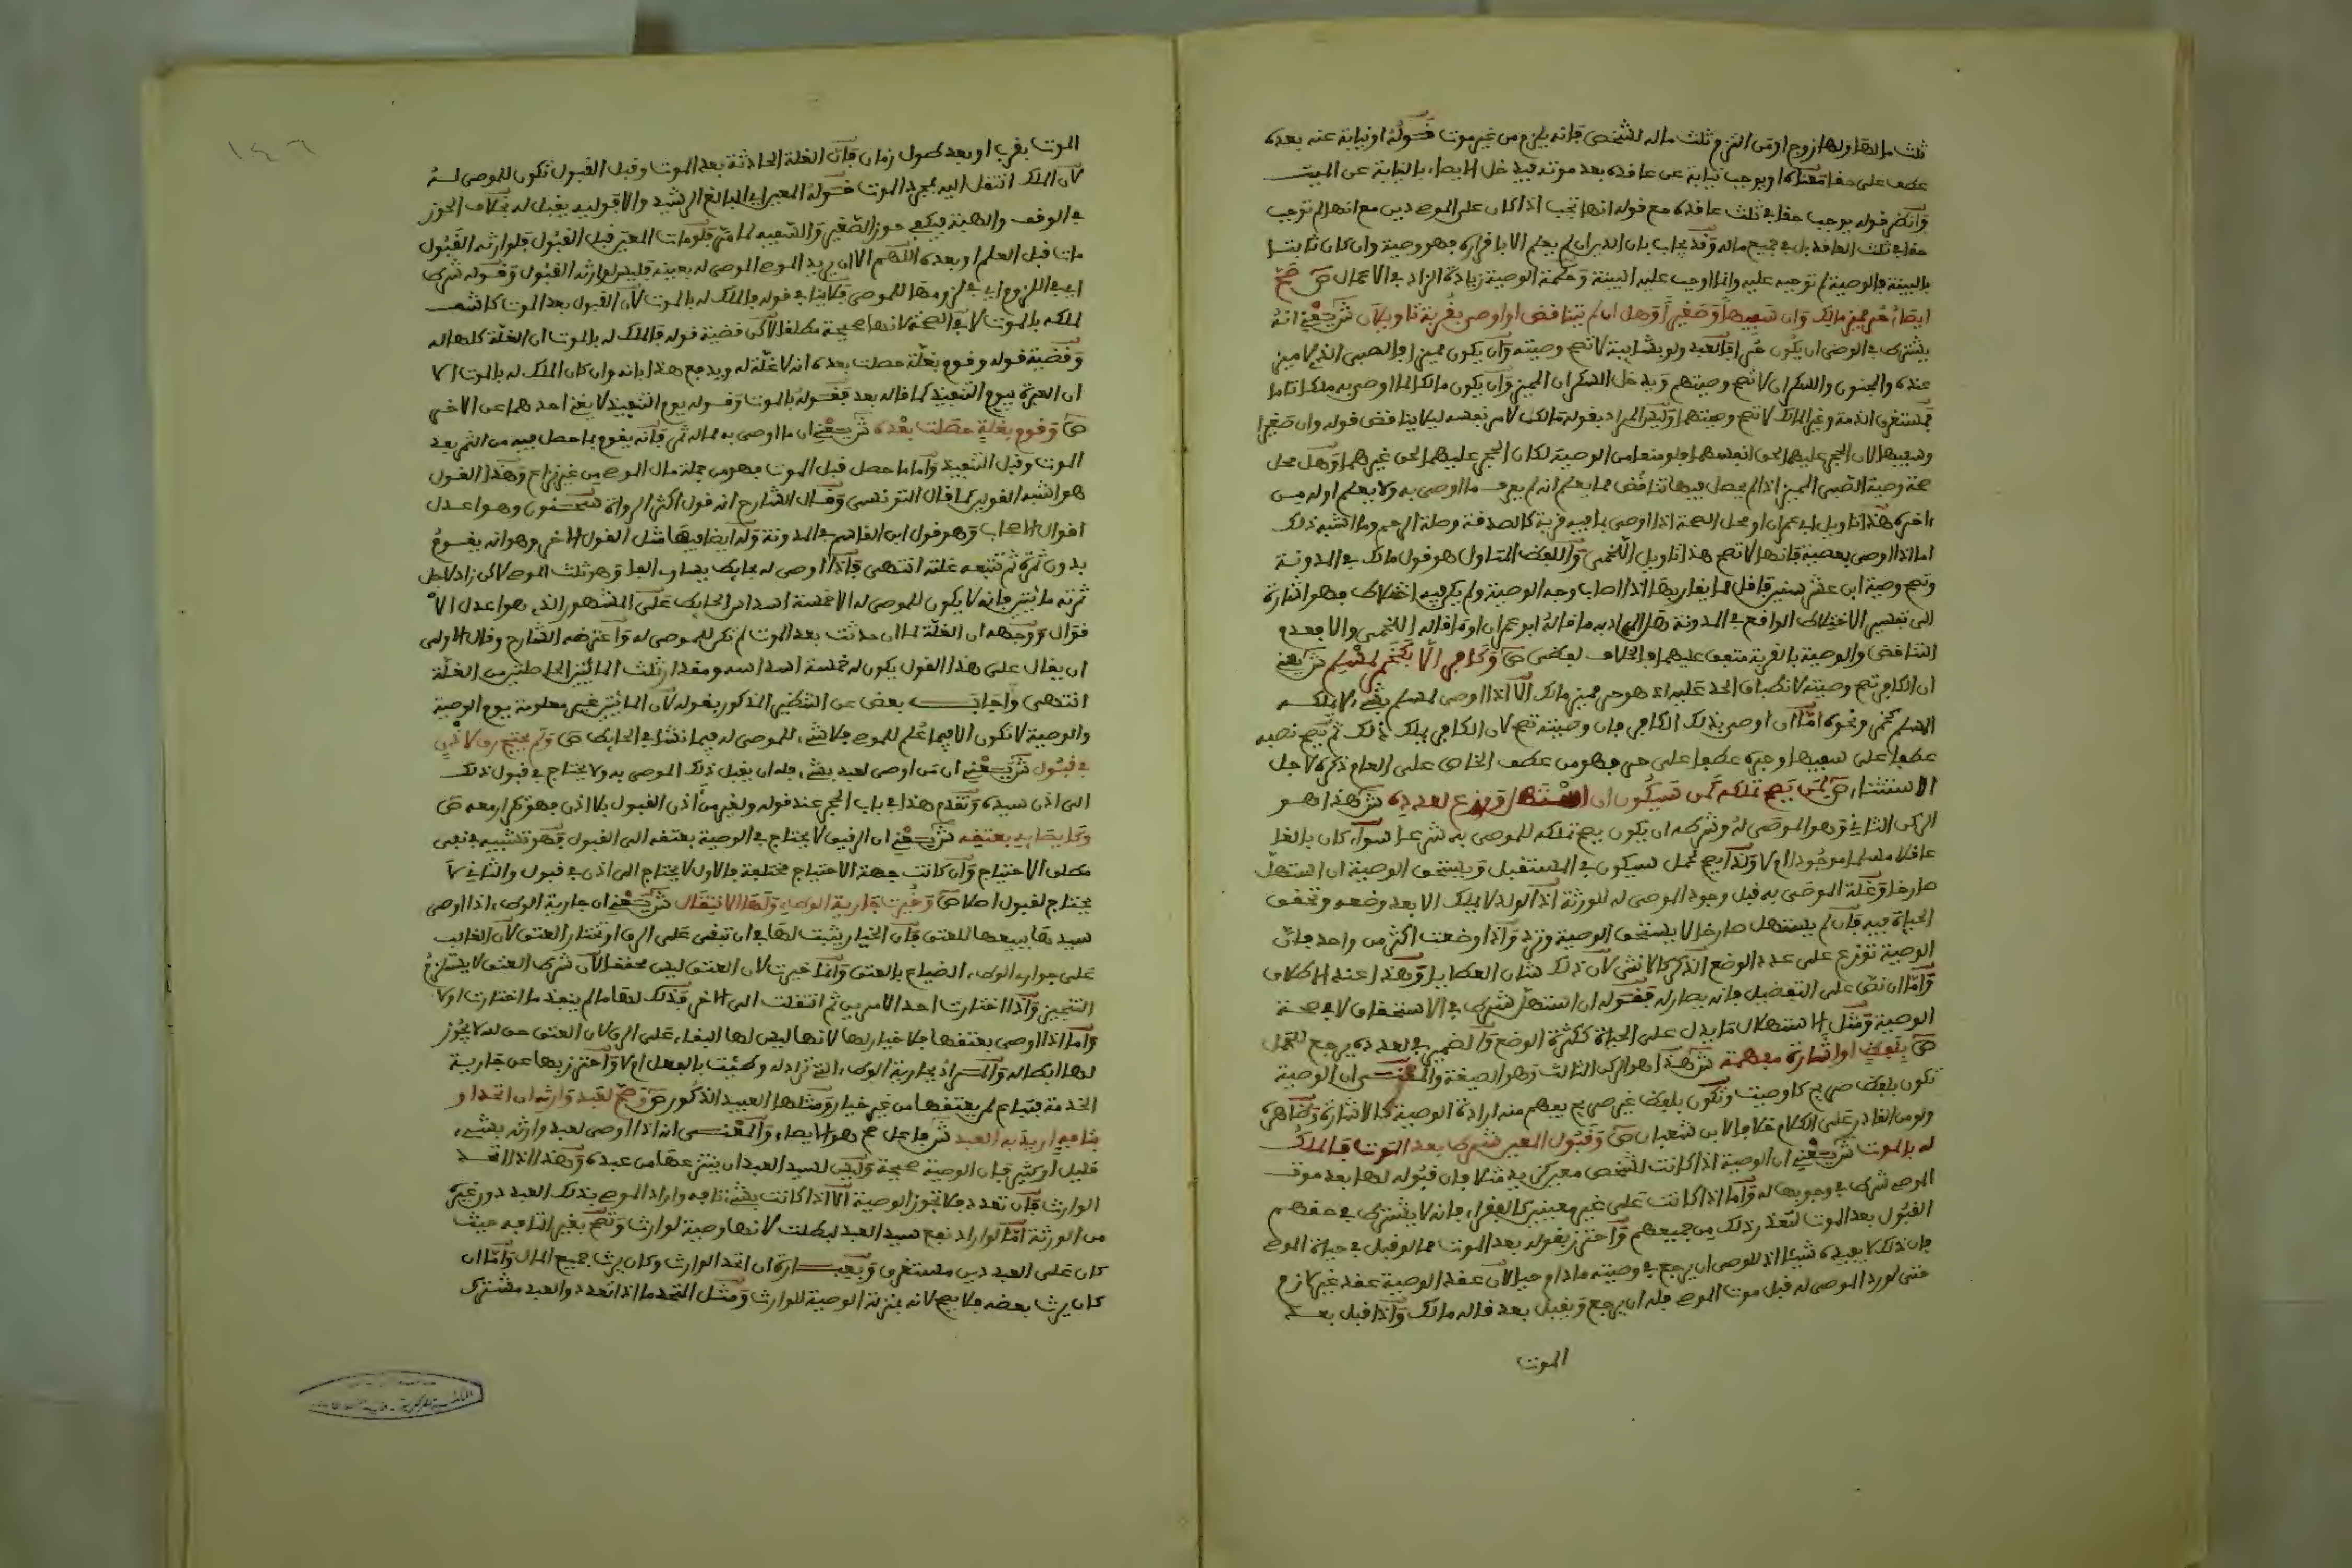 ثلث مالها ولها زوج او من التزم ثلث ماله لشخص فانه يلزم من غير موت فقوله او نيابة عنه بعده
عطف على حقا معناه او يوجب نيابة عن عاقده بعد موته فيدخل الايصاء بالنيابة عن الميت
وانظر قوله يوجب حقا في ثلث عاقده مع قوله انها تجب اذا كان على الموصي دين مع انها لم توجب
حقا في ثلث العاقد بل في جميع ماله وقد يجاب بان الدين ان لم يعلم الا باقراره فهو وصية وان كان ثابتا
بالبينة فالوصية لم توجبه عليه وانما اوجب عليه البينة وحكمة الوصية زيادة الزاد في الاعمال ص صح
ايصاء حر مميز مالك وان سفيها او صغيرا وهل ان لم يتناقض او اوصى بقربة تاويلان ش يعني انه
يشترط في الموصي ان يكون حرا فالعبد ولو بشايبة لا تصح وصيته وان يكون مميزا فالصبي الذي لا ميز
عنده والمجنون والسكران لا تصح وصيتهم ويدخل السكران المميز وان يكون مالكا لما اوصى به ملكا تاما
فمستغرق الذمة وغير المالك لا تصح وصيتهما وليس المراد بقوله مالك لامر نفسه ليلا يناقض قوله وان صغيرا
وسفيها لان الحجر عليهما لحق انفسهما فلو منعا من الوصية لكان الحجر عليهما لحق غيرهما وهل محل
صحة وصية الصبي المميز اذا لم يحصل فيها تناقض مما يعلم انه لم يعرف ما اوصى به ولا يعلم اوله من
اخره هذا تاويل ابي عمران او محل الصحة اذا اوصى بما فيه قربة كالصدقة وصلة الرحم وما اشبه ذلك
اما اذا اوصى بمعصية فانها لا تصح هذا تاويل اللخمي واللفظ المتاول هو قول مالك في المدونة
وتصح وصية ابن عشر سنين فاقل مما يقاربها اذا اصاب وجه الوصية ولم يكن فيه اختلاط فهو اشارة
الى تفسير الاختلاط الواقع في المدونة هل المراد به ما قاله ابو عمران او ما قاله اللخمي والا فعدم
التناقض والوصية بالقربة متفق عليهما فالخلاف لفظي ص وكافرا الا بكخمر لمسلم ش يعني
ان الكافر تصح وصيته لانطباق الحد عليه اذ هو حر مميز مالك الا اذا اوصى لمسلم بشيء لا يملكه
المسلم كخمر ونحوه اما ان اوصى بذلك لكافر فان وصيته تصح لان الكافر يملك ذلك ثم يصح نصبه
عطفا على سفيها وجره عطفا على حر فهو من عطف الخاص على العام ذكره لاجل
الاستثناء ص لمن يصح تملكه كمن سيكون ان استهل ووزع لعدده ش هذا هو
الركن الثاني وهو الموصى له وشرطه ان يكون يصح تملكه للموصى به شرعا سواء كان بالغا
عاقلا مسلما موجودا ام لا ولذا يصح لحمل سيكون في المستقبل ويستحق الوصية ان استهل
صارخا وغلة الموصى به قبل وجود الموصى له للورثة اذ الولد لا يملك الا بعد وضعه وتحقق
الحياة فيه فان لم يستهل صارخا لا يستحق الوصية وترد واذا وضعت اكثر من واحد فان
الوصية توزع على عدد الوضع الذكر كالانثى لان ذلك شان العطايا وهذا عند الاطلاق
واما ان نص على التفضيل فانه يصار له فقوله ان استهل شرط في الاستحقاق لا في صحة
الوصية ومثل الاستهلال ما يدل على الحياة ككثرة الوضع والضمير في لعدده يرجع للحمل
ص بلفظ او اشارة مفهمة ش هذا هو الركن الثالث وهو الصيغة والمعنى ان الوصية
تكون بلفظ صريح كاوصيت وتكون بلفظ غير صريح يفهم منه ارادة الوصية كالاشارة وظاهره
ولو من القادر على الكلام خلافا لابن شعبان ص وقبول المعين شرط بعد الموت فالملك
له بالموت ش يعني ان الوصية اذا كانت لشخص معين كزيد مثلا فان قبوله لها بعد موت
الموصي شرط في وجوبها له واما اذا كانت على غير معينين كالفقراء فانه لا يشترط في حقهم
القبول بعد الموت لتعذر ذلك من جميعهم واحترز بقوله بعد الموت مما لو قبل في حياة الموصي
فان ذلك لا يفيده شيئا اذ للموصي ان يرجع في وصيته ما دام حيا لان عقد الوصية عقد غير لازم
حتى لو رد الموصى له قبل موت الموصي فله ان يرجع ويقبل بعد قاله مالك واذا قبل بعد
الموت
١٤٦
الموت بقرب او بعد طول زمان فان الغلة الحادثة بعد الموت وقبل القبول تكون للموصى له
لان الملك انتقل اليه بمجرد الموت فقوله المعين اي البالغ الرشيد والا فوليه يقبل له بخلاف الحوز
في الوقف والهبة فيكفي حوز الصغير والسفيه لما مر فلو مات المعين قبل القبول فلوارثه القبول
مات قبل العلم او بعده اللهم الا ان يريد الموصي الموصى له بعينه فليس لوارثه القبول وقوله شرط
اي في اللزوم اي في لزومها للموصي فلا ينافي قوله فالملك له بالموت لان القبول بعد الموت كاشف
لملكه بالموت لا في الصحة لانها صحيحة مطلقا لاكن قضية قوله فالملك له بالموت ان الغلة كلها له
وقضية قوله وقوم بغلة حصلت بعده انه لا غلة له ويدفع هذا بانه وان كان الملك له بالموت الا
ان العبرة بيوم التنفيذ كما قاله بعد فقوله بالموت وقوله يوم التنفيذ لا يغني احدهما عن الاخر
ص وقوم بغلة حصلت بعده ش يعني ان ما اوصى به مما له ثمر فانه يقوم بما حصل فيه من الثمر بعد
الموت وقبل التنفيذ واما ما حصل قبل الموت فهو من جملة مال الموصي من غير نزاع وهذا القول
هو اشبه القولين كما قال التونسي وقال الشارح انه قول اكثر الرواة سحنون وهو اعدل
اقوال الاصحاب وهو قول ابن القاسم في المدونة وله ايضا فيها مثل القول الاخر وهو انه يقوم
بدون ثمرة ثم تتبعه غلته انتهى فاذا اوصى له بحايط يساوي الفا وهو ثلث الموصي لاكن زاد لاجل
ثمرته مائتين فانه لا يكون للموصى له الا خمسة اسداس الحايط على المشهور الذي هو اعدل الا
قوال ووجهه ان الغلة لما ان حدثت بعد الموت لم تكن للموصى له واعترضه الشارح وقال الاولى
ان يقال على هذا القول يكون له خمسة اسداسه ومقدار ثلث المائتين الحاصلتين من الغلة
انتهى واجاب بعض عن التنظير المذكور بقوله لان المائتين غير معلومة يوم الوصية
والوصية لا تكون الا فيما علم للموصي فلا شيء للموصى له فيما نشا في الحايط ص ولم يحتج رق لاذن
في قبول ش يعني ان من اوصى لعبد بشيء فله ان يقبل ذلك الموصى به ولا يحتاج في قبول ذلك
الى اذن سيده وتقدم هذا في باب الحجر عند قوله ولغير من اذن القبول بلا اذن فهو تكرار معه ص
كايصايه بعتقه ش يعني ان الرقيق لا يحتاج في الوصية بعتقه الى القبول فهو تشبيه في نفي
مطلق الاحتياج وان كانت جهة الاحتياج مختلفة فالاول لا يحتاج الى اذن في قبول والثاني لا
يحتاج لقبول اصلا ص وخيرت جارية الوطء ولها الانتقال ش يعني ان جارية الوطء اذا اوصى
سيدها ببيعها للعتق فان الخيار يثبت لها في ان تبقى على الرق او تختار العتق لان الغالب
على جواري الوطء الضياع بالعتق وانما خيرت لان العتق ليس محققا لان شرط العتق لا يستلزم
التنجيز واذا اختارت احد الامرين ثم انتقلت الى الاخر فذلك لها ما لم ينفذ ما اختارت اولا
واما اذا اوصى بعتقها فلا خيار لها لانها ليس لها البقاء على الرق لان العتق حق لله لا يجوز
لها ابطاله والمراد بجارية الوطء التي تراد له وطئت بالفعل ام لا واحترز بها عن جارية
الخدمة فتباع لمن يعتقها من غير خيار ومثلها العبيد الذكور ص وصح لعبد وارثه ان اتحد او
بتافه اريد به العبد ش فاعل صح هو الايصاء والمعنى انه اذا اوصى لعبد وارثه بشيء
قليل او كثير فان الوصية صحيحة وليس لسيد العبد ان ينتزعها من عبده وهذا اذا اتحد
الوارث فان تعدد فلا تجوز الوصية الا اذا كانت بشيء تافه واراد الموصي بذلك العبد دون غيره
من الورثة اما لو اراد نفع سيد العبد لبطلت لانها وصية لوارث وتصح بغير التافه حيث
كان على العبد دين مستغرق وبعبارة ان اتحد الوارث وكان يرث جميع المال واما ان
كان يرث بعضه فلا يصح لانه بمنزلة الوصية للوارث ومثل المتحد ما اذا تعدد والعبد مشترك